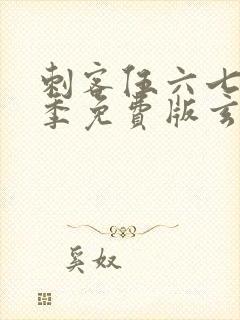 刺客伍六七
季免费版玄
奚奴